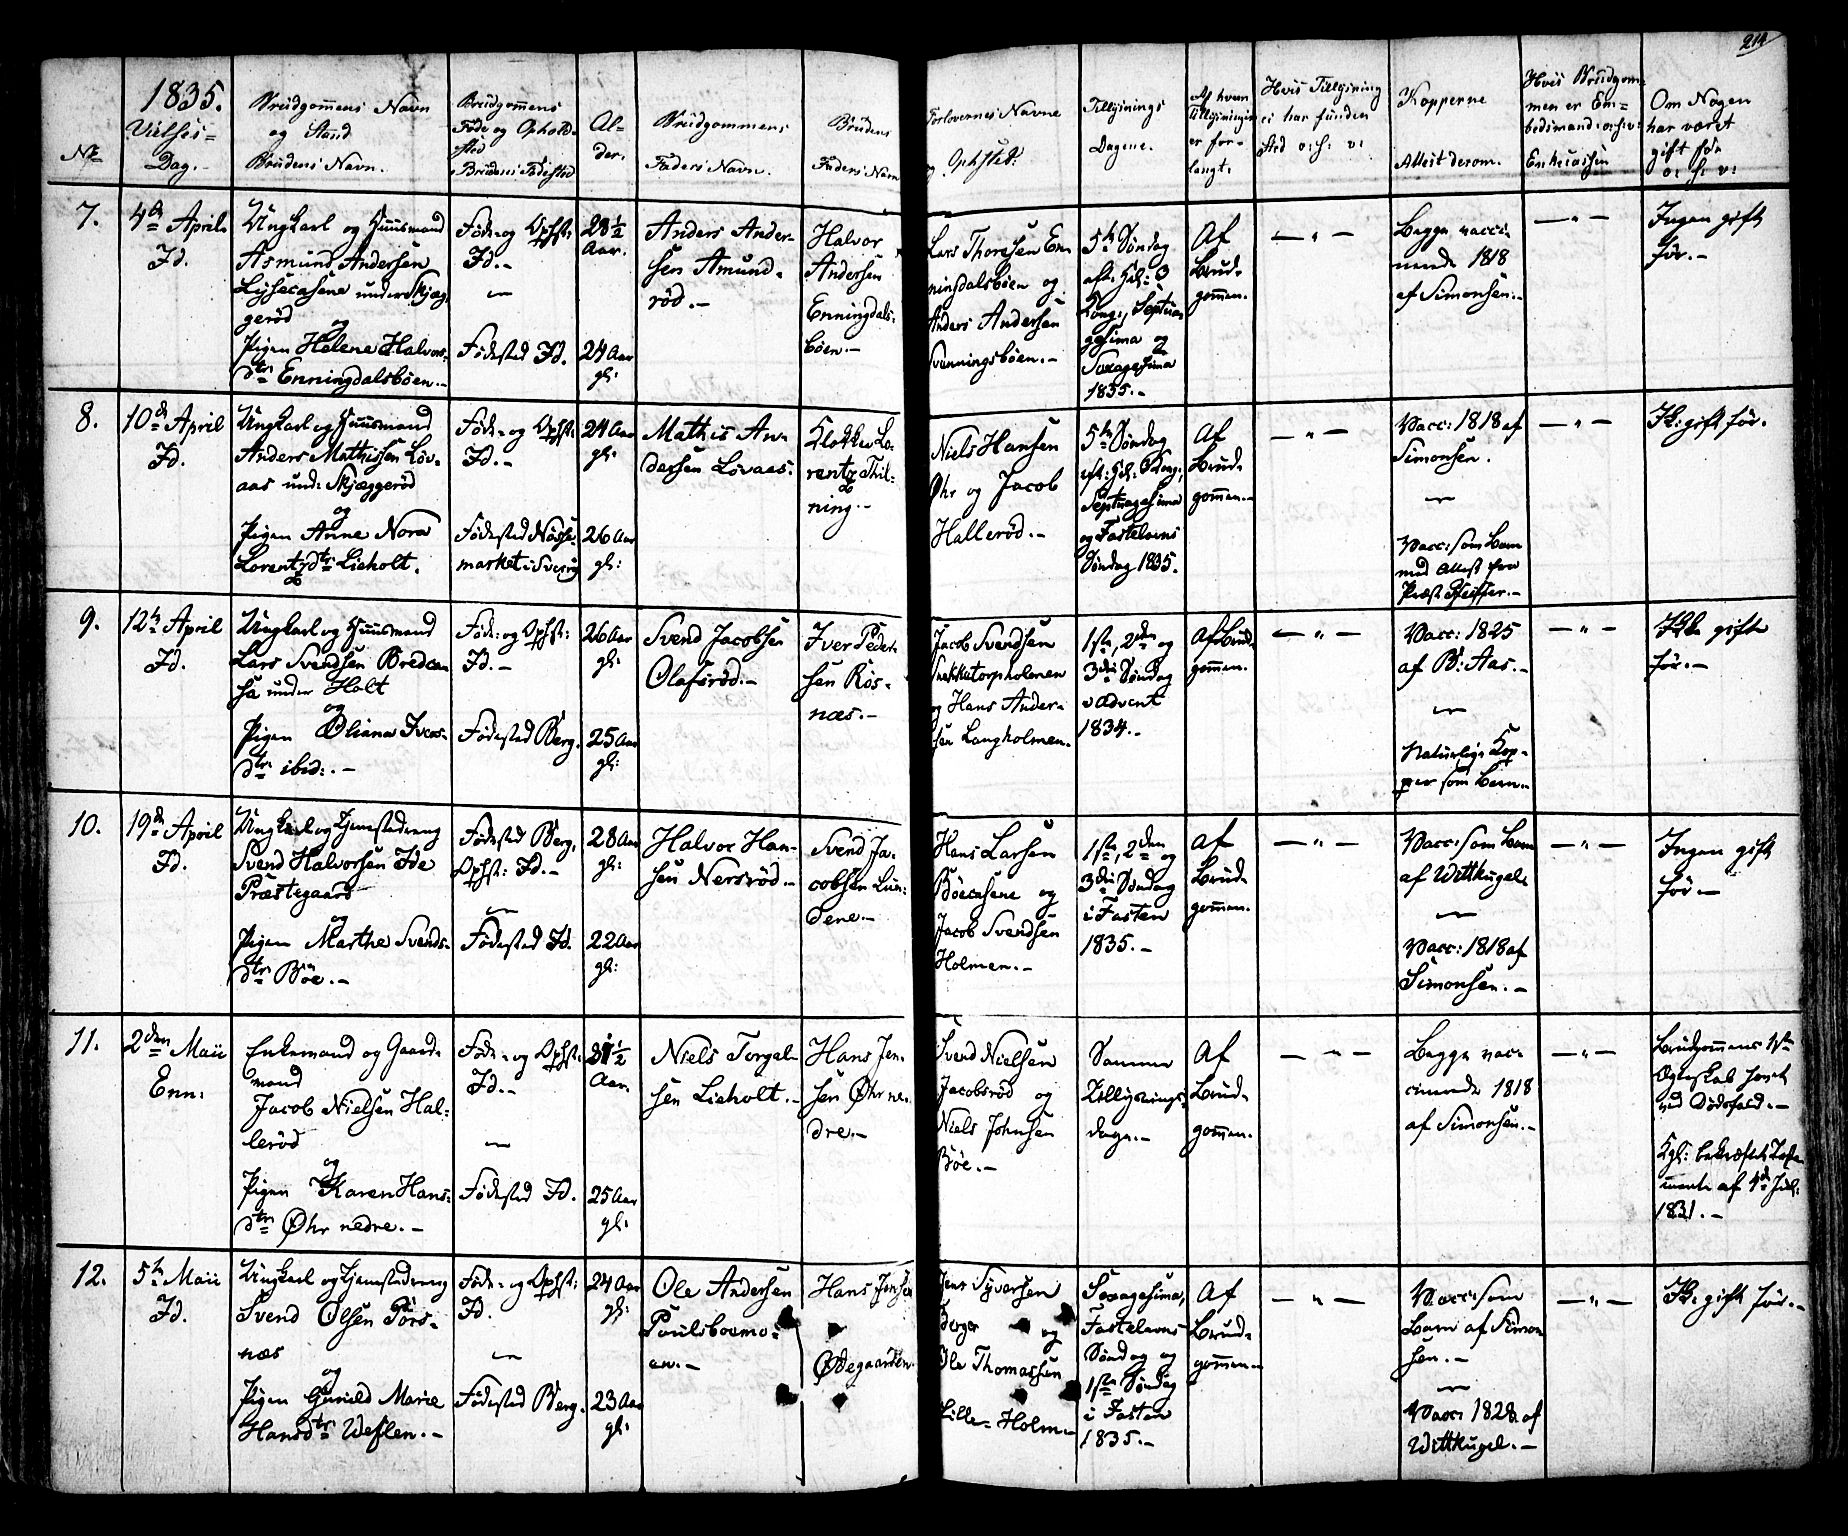 214
1835.
No
Vielses-
Dag.
Brudgommens Navn
og Stand
Brudens Navn.
Brudgommens
Føde og Opholds-
sted
Brudens Fødested
Al-
der.
Brudgommens
Faders Navn.
Brudens
Faders Navn
Forlovernes Navne
og Ophsted.
Tillysnings
Dagene.
Af hvem
Tillysningen
er for-
langt.
Hvis Tillysning
ei har funden
sted o: s: v:
Kopperne
Attest derom.
Hvis Brudgom-
men er Em-
bedsmand: o: s: v:
Enkecassen
Om Nogen
har været
gift før
o: s: v:
7.
4de April
Id.
Ungkarl og Huusmand
Asmund Andersen
Lysecasene under Skjæg
gerød
og
Pigen Helene Halvors-
dtr Enningdalsböen.-
Føde- og Ophst:
Id.-
Fødested Id.
28½
Aar.
24 Aar
gl:
Anders Ander-
sen Amund-
röd.-
Halvor
Andersen
Enningdals-
böen.-
Lars Thoresen En-
ningsdalsböen og
Anders Andersen
Svenningsböen.-
5te Søndag
eft: Hel: 3
Kong., Septua-
gesima og
Sexagesima
1835.-
Af
Brud-
gommen.
— " —
Begge vacci-
nerede 1818
af Simonsen.-
— " —
Ingen gift
før.-
8.
10de April
Id.
Ungkarl og Huusmand
Anders Mathissen Löv-
aas und: Skjæggeröd
og
Pigen Anne Nora
Lorentzdtr Lieholt.
Føde- og Ophst:
Id.-
Fødested Näsje-
market i Sverig
24 Aar
gl:
26 Aar
gl:
Mathis An-
dersen Lövaas.
Klokker Lo-
rentz Thil-
ning.-
Niels Hansen
Øhr og Jacob
Halleröd.-
5te Søndag
eft: Hel: 3 Kong.,
Septuagesima
og Fastelavns
Søndag 1835.
Af
Brud-
gommen.-
— " —
Vacc: 1818 af
Simonsen.
Vacc: som Barn
med Attest fra
Præst Pfeiffer.-
— " —
Ik: gift før.
9.
12te April
Id.
Ungkarl og Huusmand
Lars Svendsen Bredca-
sa under Holt
og
Pigen Oliana Ivers-
dtr ibid:.-
Føde- og Ophst:
Id.-
Fødested Berg.
26 Aar
gl:
25 Aar
gl:
Svend Jacobsen
Olafsröd.-
Iver Peder-
sen Rös-
næs.-
Jacob Svendsen
Snekketorpholmen
og Hans Ander-
sen Langholmen.
1ste, 2den og
3die Søndag
i Advent
1834.-
Af Brud-
gommen.
— " —
Vacc: 1825
af B: Aas.-
Naturlige Kop-
per som Barn.-
— " —
Ikke gifte
før.-
10.
19de April
Id.
Ungkarl og Tjenestedreng
Svend Halvorsen Ide
Præstegaard
og
Pigen Marthe Svends-
dtr Böe.-
Fødested Berg,
Ophst: Id.-
Fødested Id.
28 Aar
gl:
22 Aar
gl:
Halvor Han-
sen Nersröd.-
Svend Ja-
cobsen Lun-
dene.-
Hans Larsen
Böecasene og
Jacob Svendsen
Holmen.-
1ste, 2den og
3die Søndag
i Fasten
1835.-
af
Brud-
gommen.
— " —
Vacc: som Barn
af Wittkugel.
Vacc: 1818 af
Simonsen.-
— " —
Ingen gift
før.-
11.
2den Maii
Enn:
Enkemand og Gaard-
mand
Jacob Nielsen Hal-
leröd
og
Pigen Karen Hans-
dtr Øhr nedre.-
Føde- og Ophst:
Id.-
Fødested Id.
31½
Aar.
25 Aar
gl:
Niels Torgal-
sen Lieholt.-
Hans Jen-
sen Øhr ne-
dre.-
Svend Nielsen
Jacobsröd og
Niels Johnsen
Böe.-
Samme
Tillysnings-
dage.-
Af
Brud-
gommen.
— " —
Begge vac-
cinerede 1818
af Simonsen.-
— " —
Brudgommens 1ste
Ægteskab hævet
ved Dødsfald.-
Kgl: bekræftet Testa-
mente af 4de Jul:
1831.-
12.
5te Maii
Id.
Ungkarl og Tjenestedreng
Svend Olsen Törs-
næs
og
Pigen Gunild Marie
Hansdtr Weslen.-
Føde- og Ophst:
Id.
Fødested Berg.
24 Aar
gl:
23 Aar
gl:
Ole Andersen
Poulsboemo-
en.-
Hans Jensen
Ødegaarden.
Jens Syversen
Berger og
Ole Thomassen
Lille-Holm-
Sexagesima,
Fastelavns-
Søndag og
1ste Søndag
i Fasten
1835.-
Af
Brud-
gommen.-
— " —
Vacc: som
Barn af Simon-
sen.-
Vacc: 1828 af
Wittkugel.-
— " —
Ik: gift før.-